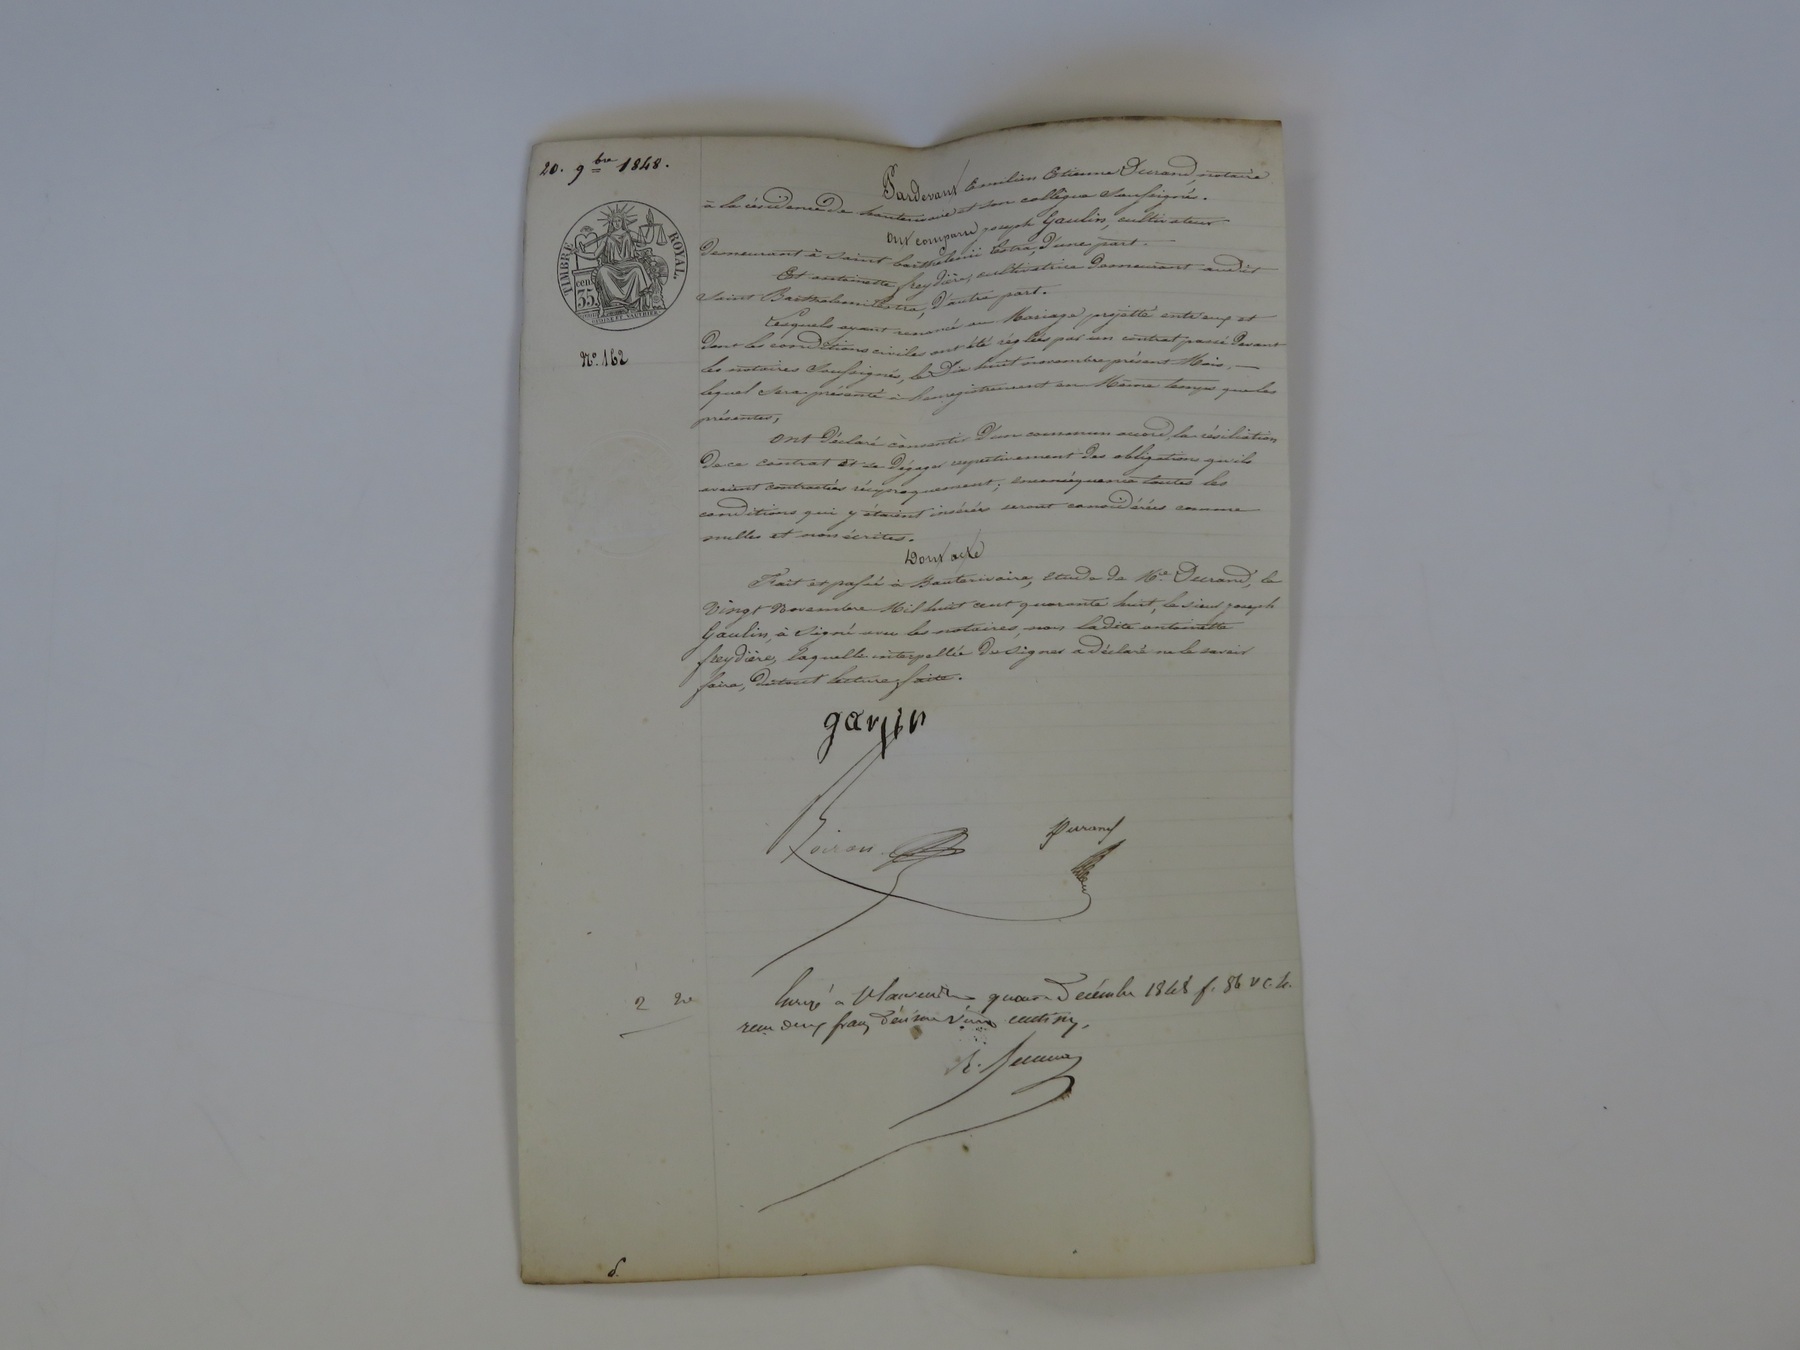 20. 9bre 1848.
TIMBRE ROYAL.
35 cent
No. 162
Pardevant Emilien Etienne Durand, notaire
à la résidence de hauterivoire et son collègue Soussignés.
Ont comparu joseph Gaulin, cultivateur
demeurant à Saint barthelemi lestra, d'une part.
Et antoinette freydière, cultivatrice demeurant audit
Saint Barthelemi lestra, d'autre part.
Lesquels ayant renoncé au Mariage projetté entr'eux et
dont les conditions civiles ont été réglées par un contrat passé devant
les notaires Soussignés, le Dix huit novembre présent Mois,
lequel Sera présenté à l'enregistrement en Même temps que les
présentes;
Ont déclaré consentir d'un commun accord, la résiliation
de ce contrat et se dégager respectivement des obligations qu'ils
avaient contractées réciproquement; en conséquence toutes les
conditions qui y étaient insérées seront considérées comme
nulles et non écrites.
Dont acte
Fait et passé à hauterivoire, étude de Me Durand, le
Vingt Novembre Mil huit cent quarante huit, le sieur joseph
Gaulin, à Signé avec les notaires, non ladite antoinette
freydière, laquelle interpellée de Signer a déclaré ne le savoir
faire, du tout lecture faite.
gaulin
Durand
décembre 1848 f. 86 v c. 4.
deux francs centimes